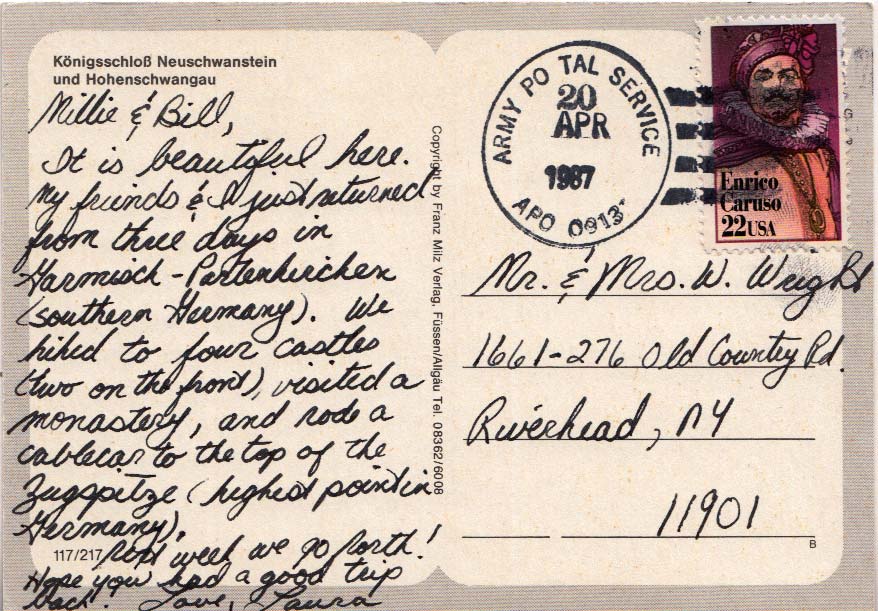 Königsschloß Neuschwanstein
und Hohenschwangau
Millie & Bill,
It is beautiful here.
My friends & I just returned
from three days in
Garmisch-Partenkirchen
(southern Germany). We
hiked to four castles
(two on the front), visited a
monastery, and rode a
cablecar to the top of the
Zugspitze (highest point in
Germany).
117/217
Next week we go North!
Hope you had a good trip
back! Love, Laura
Copyright by Franz Milz Verlag, Füssen/Allgäu Tel. 08362/6008
ARMY PO TAL SERVICE
20
APR
1987
APO 0913
Enrico
Caruso
22USA
Mr. & Mrs. W. Wright
1661-276 Old Country Rd.
Riverhead, NY
11901
B